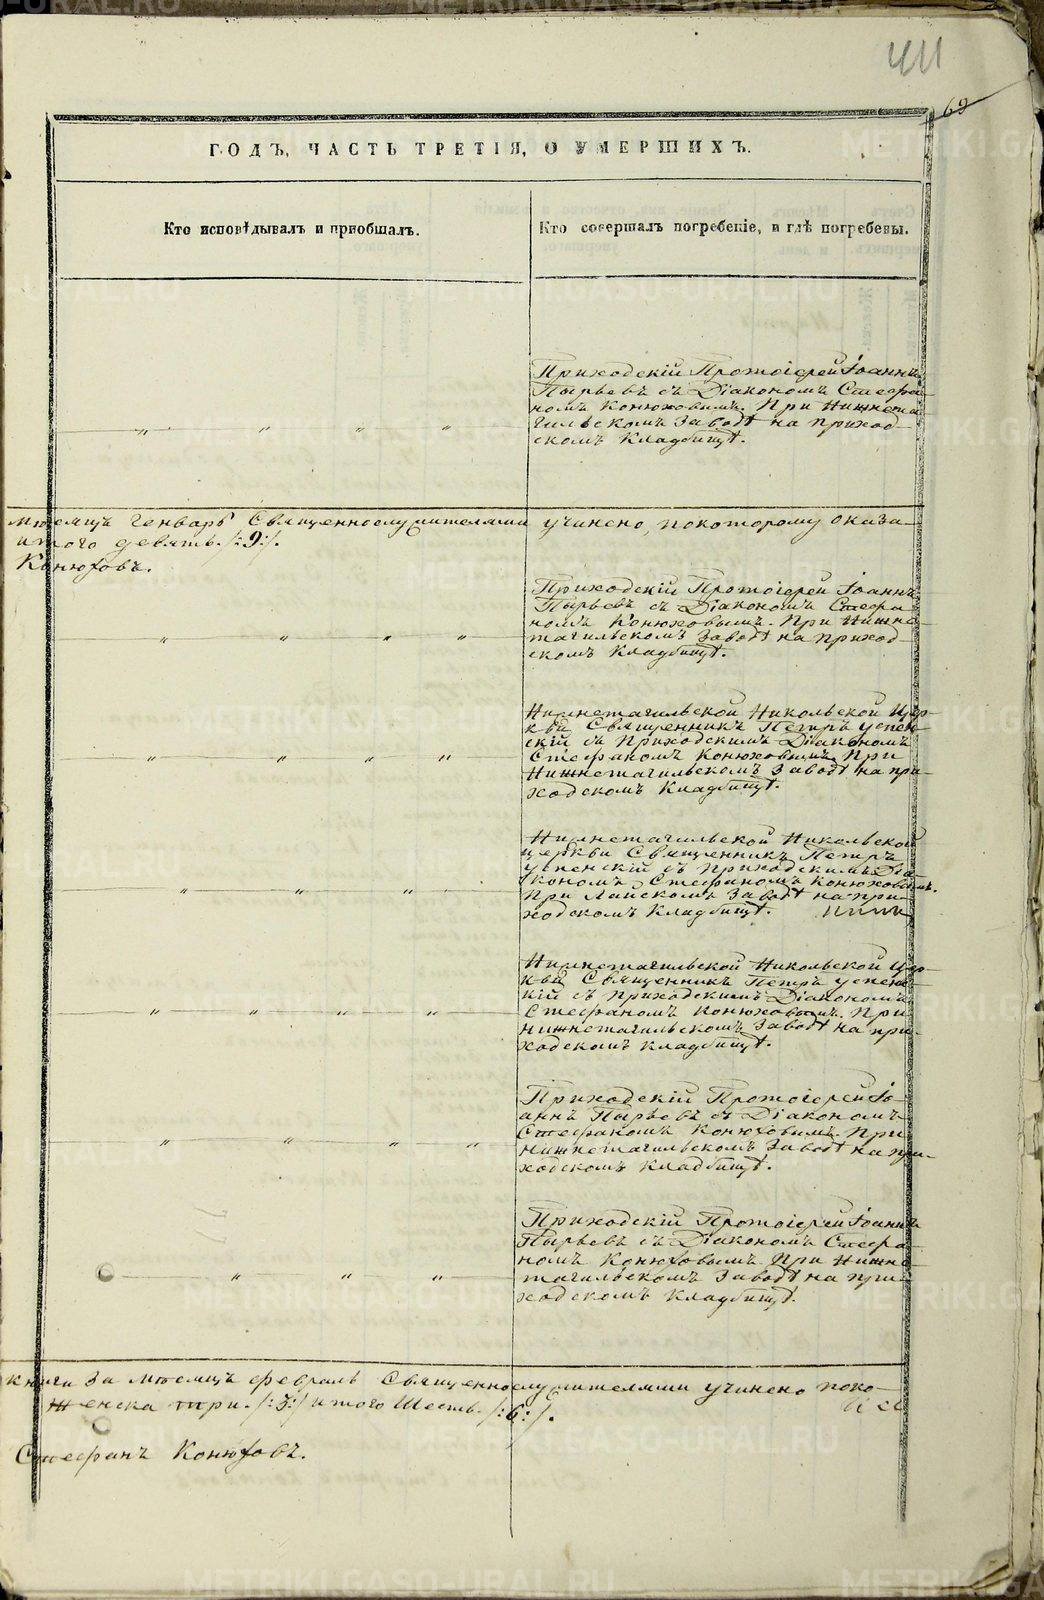 411
69
ГОДЪ, ЧАСТЬ ТРЕТІЯ, О УМЕРШИХЪ.
Кто исповѣдывалъ и пріобщалъ.
Кто совершалъ погребеніе, и гдѣ погребены.
Приходскій Протоіерей Іоаннъ
Пырьевъ съ Діакономъ Стефа-
номъ Конюховымъ. При Нижнета
гильскомъ Заводѣ на приход-
скомъ Кладбищѣ.
мѣсяцъ Генварь Священнослужителями учинено, покоторому оказа-
итого девять /:9:/.
Конюховъ.
Приходскій Протоіерей Іоаннъ
Пырьевъ съ Діакономъ Стефа-
номъ Конюховымъ. При Нижне-
тагильскомъ Заводѣ на приход-
скомъ Кладбищѣ.
Нижнетагильской Никольской Цер-
кви Священникъ Петръ Успен-
скій съ Приходскимъ Діакономъ
Стефаномъ Конюховымъ При
Нижнетагильскомъ Заводѣ на при-
ходскомъ Кладбищѣ.
Нижнетагильской Никольской
церкви Священникъ Петръ
Успенскій съ Приходскимъ Діа-
кономъ Стефаномъ Конюховымъ.
При Лайскомъ Заводѣ на при-
ходскомъ Кладбищѣ.
Нижнетагильской Никольской Цер-
кви Священникъ Петръ Успенс-
кій съ Приходскимъ Діакономъ
Стефаномъ Конюховымъ. При
Нижнетагильскомъ Заводѣ на при-
ходскомъ Кладбищѣ.
Приходскій Протоіерей Іо-
аннъ Пырьевъ съ Діакономъ
Стефаномъ Конюховымъ. При
Нижнетагильскомъ Заводѣ на при-
ходскомъ Кладбищѣ.
Приходскій Протоіерей Іоаннъ
Пырьевъ съ Діакономъ Стефа-
номъ Конюховымъ. При Нижне-
тагильскомъ Заводѣ на при-
ходскомъ Кладбищѣ.
книги За мѣсяцъ февраль Священнослужителями учинено, поко-
Женска три. /:3:/ итого Шесть. /:6:/.
Стефанъ Конюховъ.
METRIKI.GASO-URAL.RU